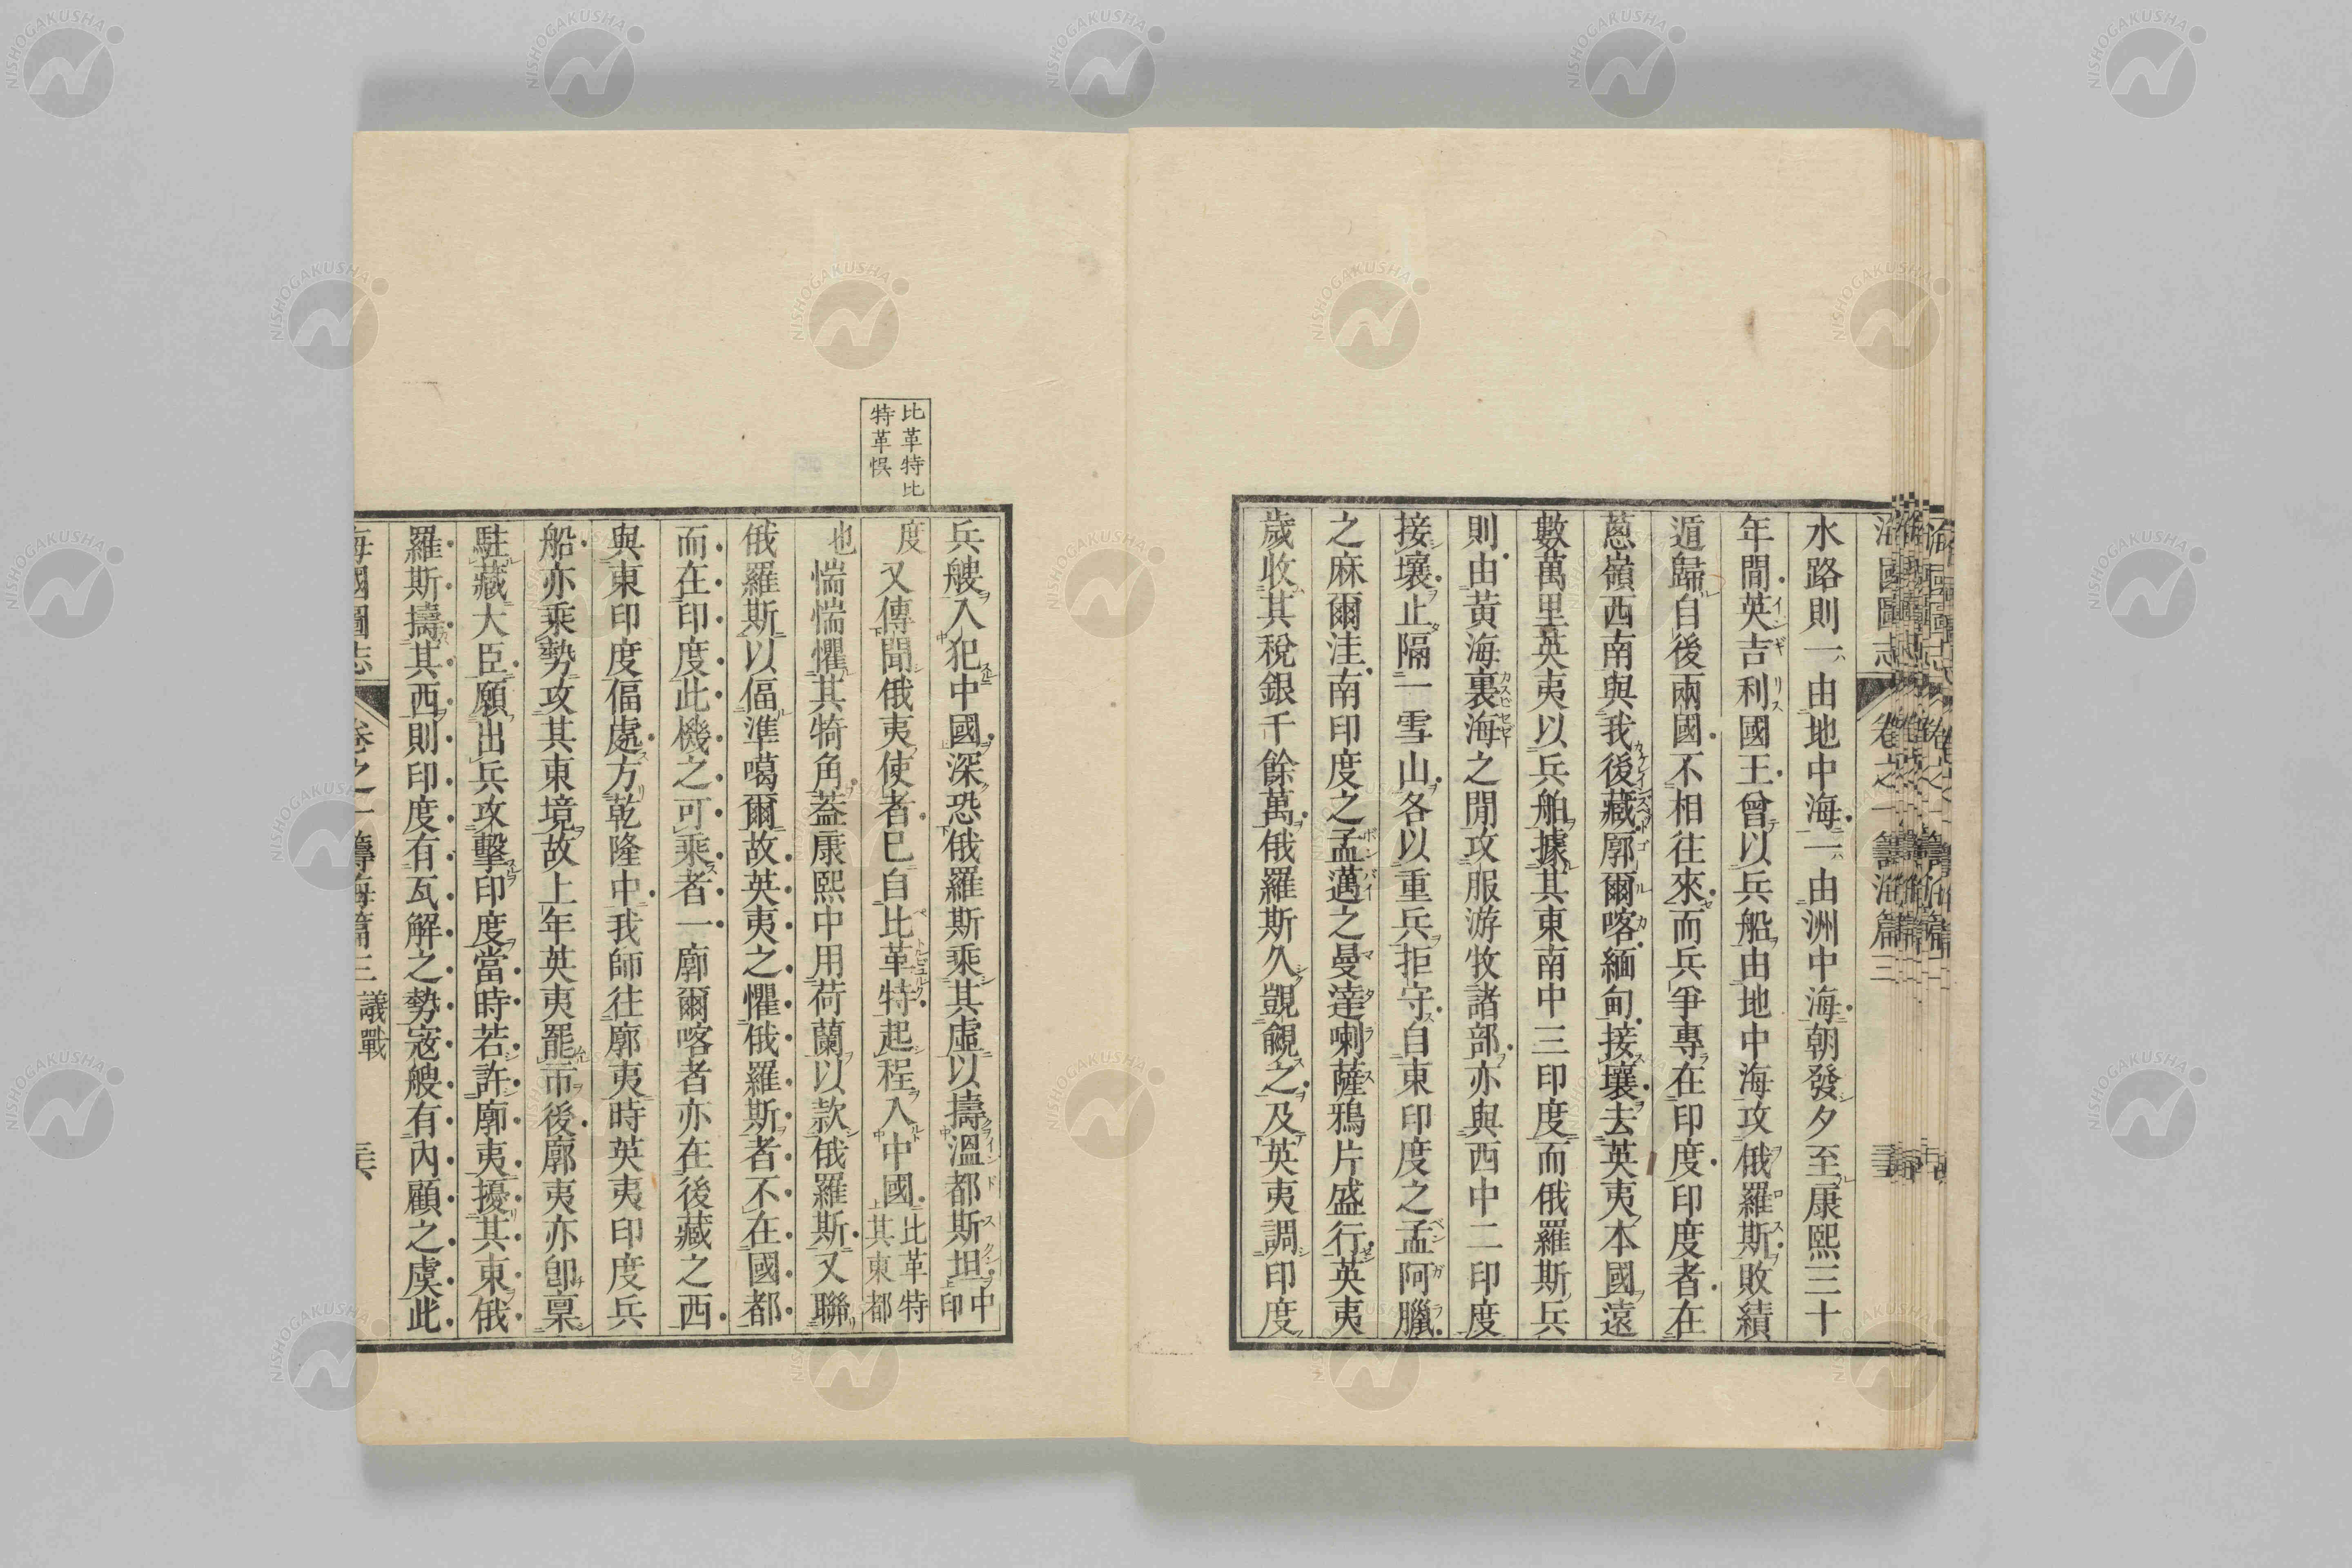 水路則一由地中海一由洲中海朝發夕至康熙三十
年間英吉利國王曾以兵船由地中海攻俄羅斯敗績
遁歸自後兩國不相往來而兵爭專在印度印度者在
蔥嶺西南與我後藏廓爾喀緬甸接壤去英夷本國遠
數萬里英夷以兵舶據其東南中三印度而俄羅斯兵
則由黃海裏海之間攻服游牧諸部亦與西中二印度
接壤止隔一雪山各以重兵拒守自東印度之孟阿臘
之麻爾洼南印度之孟邁之曼達喇薩鴉片盛行英夷
歲收其稅銀千餘萬俄羅斯久覬覦之及英夷調印度
兵艘入犯中國深恐俄羅斯乘其虛以擣溫都斯坦中印
度又傳聞俄夷使者已自比革特起程入中國比革特其東都
也惴惴懼其犄角蓋康熙中用荷蘭以款俄羅斯又聯
俄羅斯以偪準噶爾故英夷之懼俄羅斯者不在國都
而在印度此機之可乘者一廓爾喀者亦在後藏之西
與東印度偪處方乾隆中我師往廓夷時英夷印度兵
船亦乘勢攻其東境故上年英夷罷市後廓夷亦卽稟
駐藏大臣願出兵攻擊印度當時若許廓夷擾其東俄
羅斯擣其西則印度有瓦解之勢寇艘有內顧之虞此
海國圖志 卷之一 籌海篇三 議戰
比革特比
特革悞
海國圖志 卷之一 籌海篇三
NISHOGAKUSHA